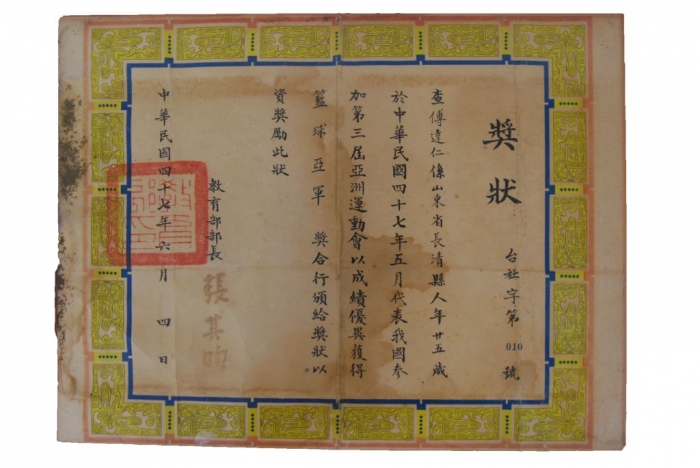 獎狀
台社字第010號
查傅達仁係山東省長清縣人年廿五歲
於中華民國四十七年五月代表我國參
加第三屆亞洲運動會以成績優異獲得
籃球亞軍獎合行頒給獎狀以
資獎勵此狀
教育部部長
張其昀
中華民國四十七年六月四日